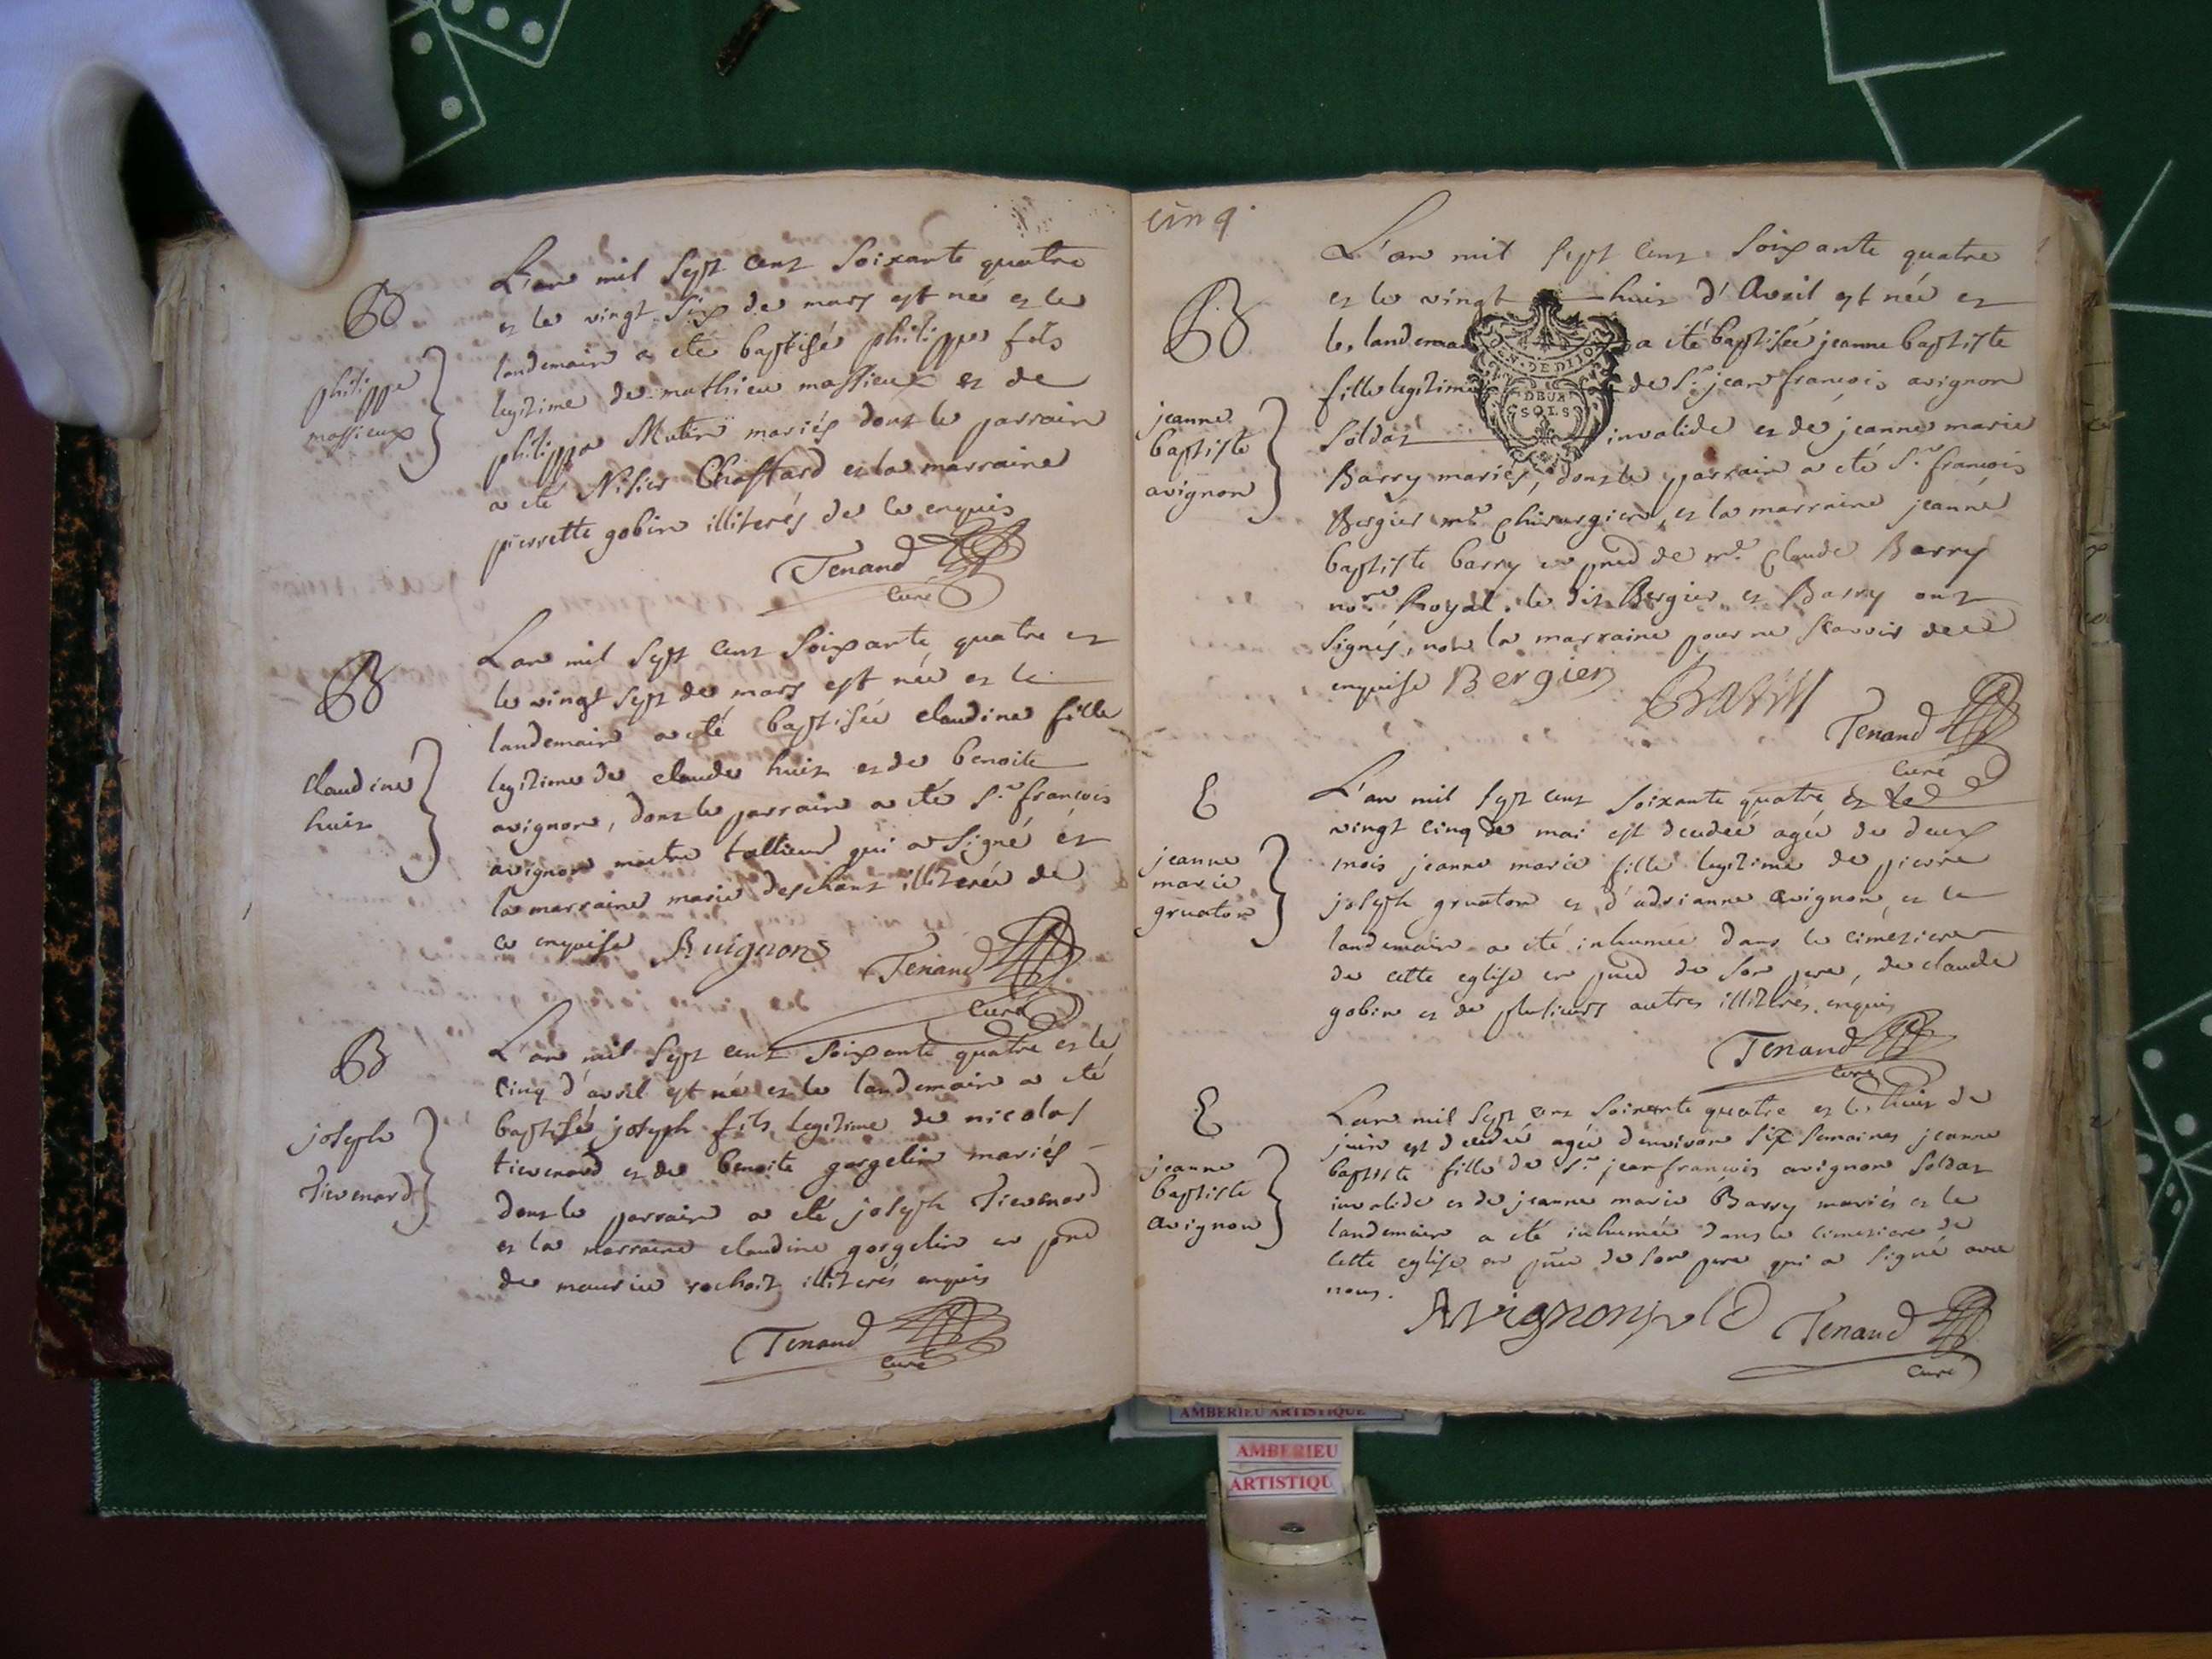 B
philippe
massieux
L'an mil sept cent soixante quatre
et le vingt six de mars est né et le
landemain a eté baptisé philippe fils
legitime de mathieu massieux et de
philippa Mutin mariés dont le parrain
a eté Nisier Chastard et la marraine
pierrette gobin illiterés de ce enquis
Tenand
curé
B
claudine
huit
L'an mil sept cent soixante quatre et
le vingt sept de mars est née et le
landemain a eté baptisée claudine fille
legitime de claude huit et de benoite
avignon, dont le parrain a eté Sr francois
avignon maitre tallieur qui a signé et
la marraine marie deschant illiterée de
ce enquise Avignon Tenand
curé
B
joseph
Tievenard
L'an mil sept cent soixante quatre et le
cinq d'avril est né et le landemain a eté
baptisé joseph fils legitime de nicolas
tievenard et de benoite gorgelin mariés
dont le parrain a eté joseph Tievenard
et la marraine claudine gorgelin en pnce
de maurice rochait illiterés enquis
Tenand
curé
cinq.
B
jeanne
baptiste
avignon
L'an mil sept cent soixante quatre
et le vingt huit d'Avril est née et
le landemain a eté baptisée jeanne baptiste
GEN. DE DIJON
DEUX
SOLS
fille legitime de Sr jean francois avignon
soldat invalide et de jeanne marie
Barry mariés, dont le parrain a eté Sr francois
Bergier me chirurgien, et la marraine jeanne
baptiste barry en pnce de me Claude Barry
nore Royal. le dit Bergier et Barry ont
signés, non la marraine pour ne scavoir de ce
enquise Bergier Barry Tenand
curé
E
jeanne
marie
gruaton
L'an mil sept cent soixante quatre et le
vingt cinq de mai est decedée agée de deux
mois jeanne marie fille legitime de pierre
joseph gruaton et d'adrianne avignon, et le
landemain a eté inhumée dans le cimetiere
de cette eglise en pnce de son pere, de claude
gobin et de plusieurs autres illiterés enquis
Tenand
curé
E
jeanne
baptiste
avignon
L'an mil sept cent soixante quatre et le huit de
juin est decedée agée d'environ six semaines jeanne
baptiste fille de Sr jean francois avignon soldat
invalide et de jeanne marie Barry mariés et le
landemain a eté inhumée dans le cimetiere de
cette eglise en pnce de son pere qui a signé avec
nous.
Avignon Tenand
curé
AMBERIEU ARTISTIQUE
AMBERIEU
ARTISTIQU